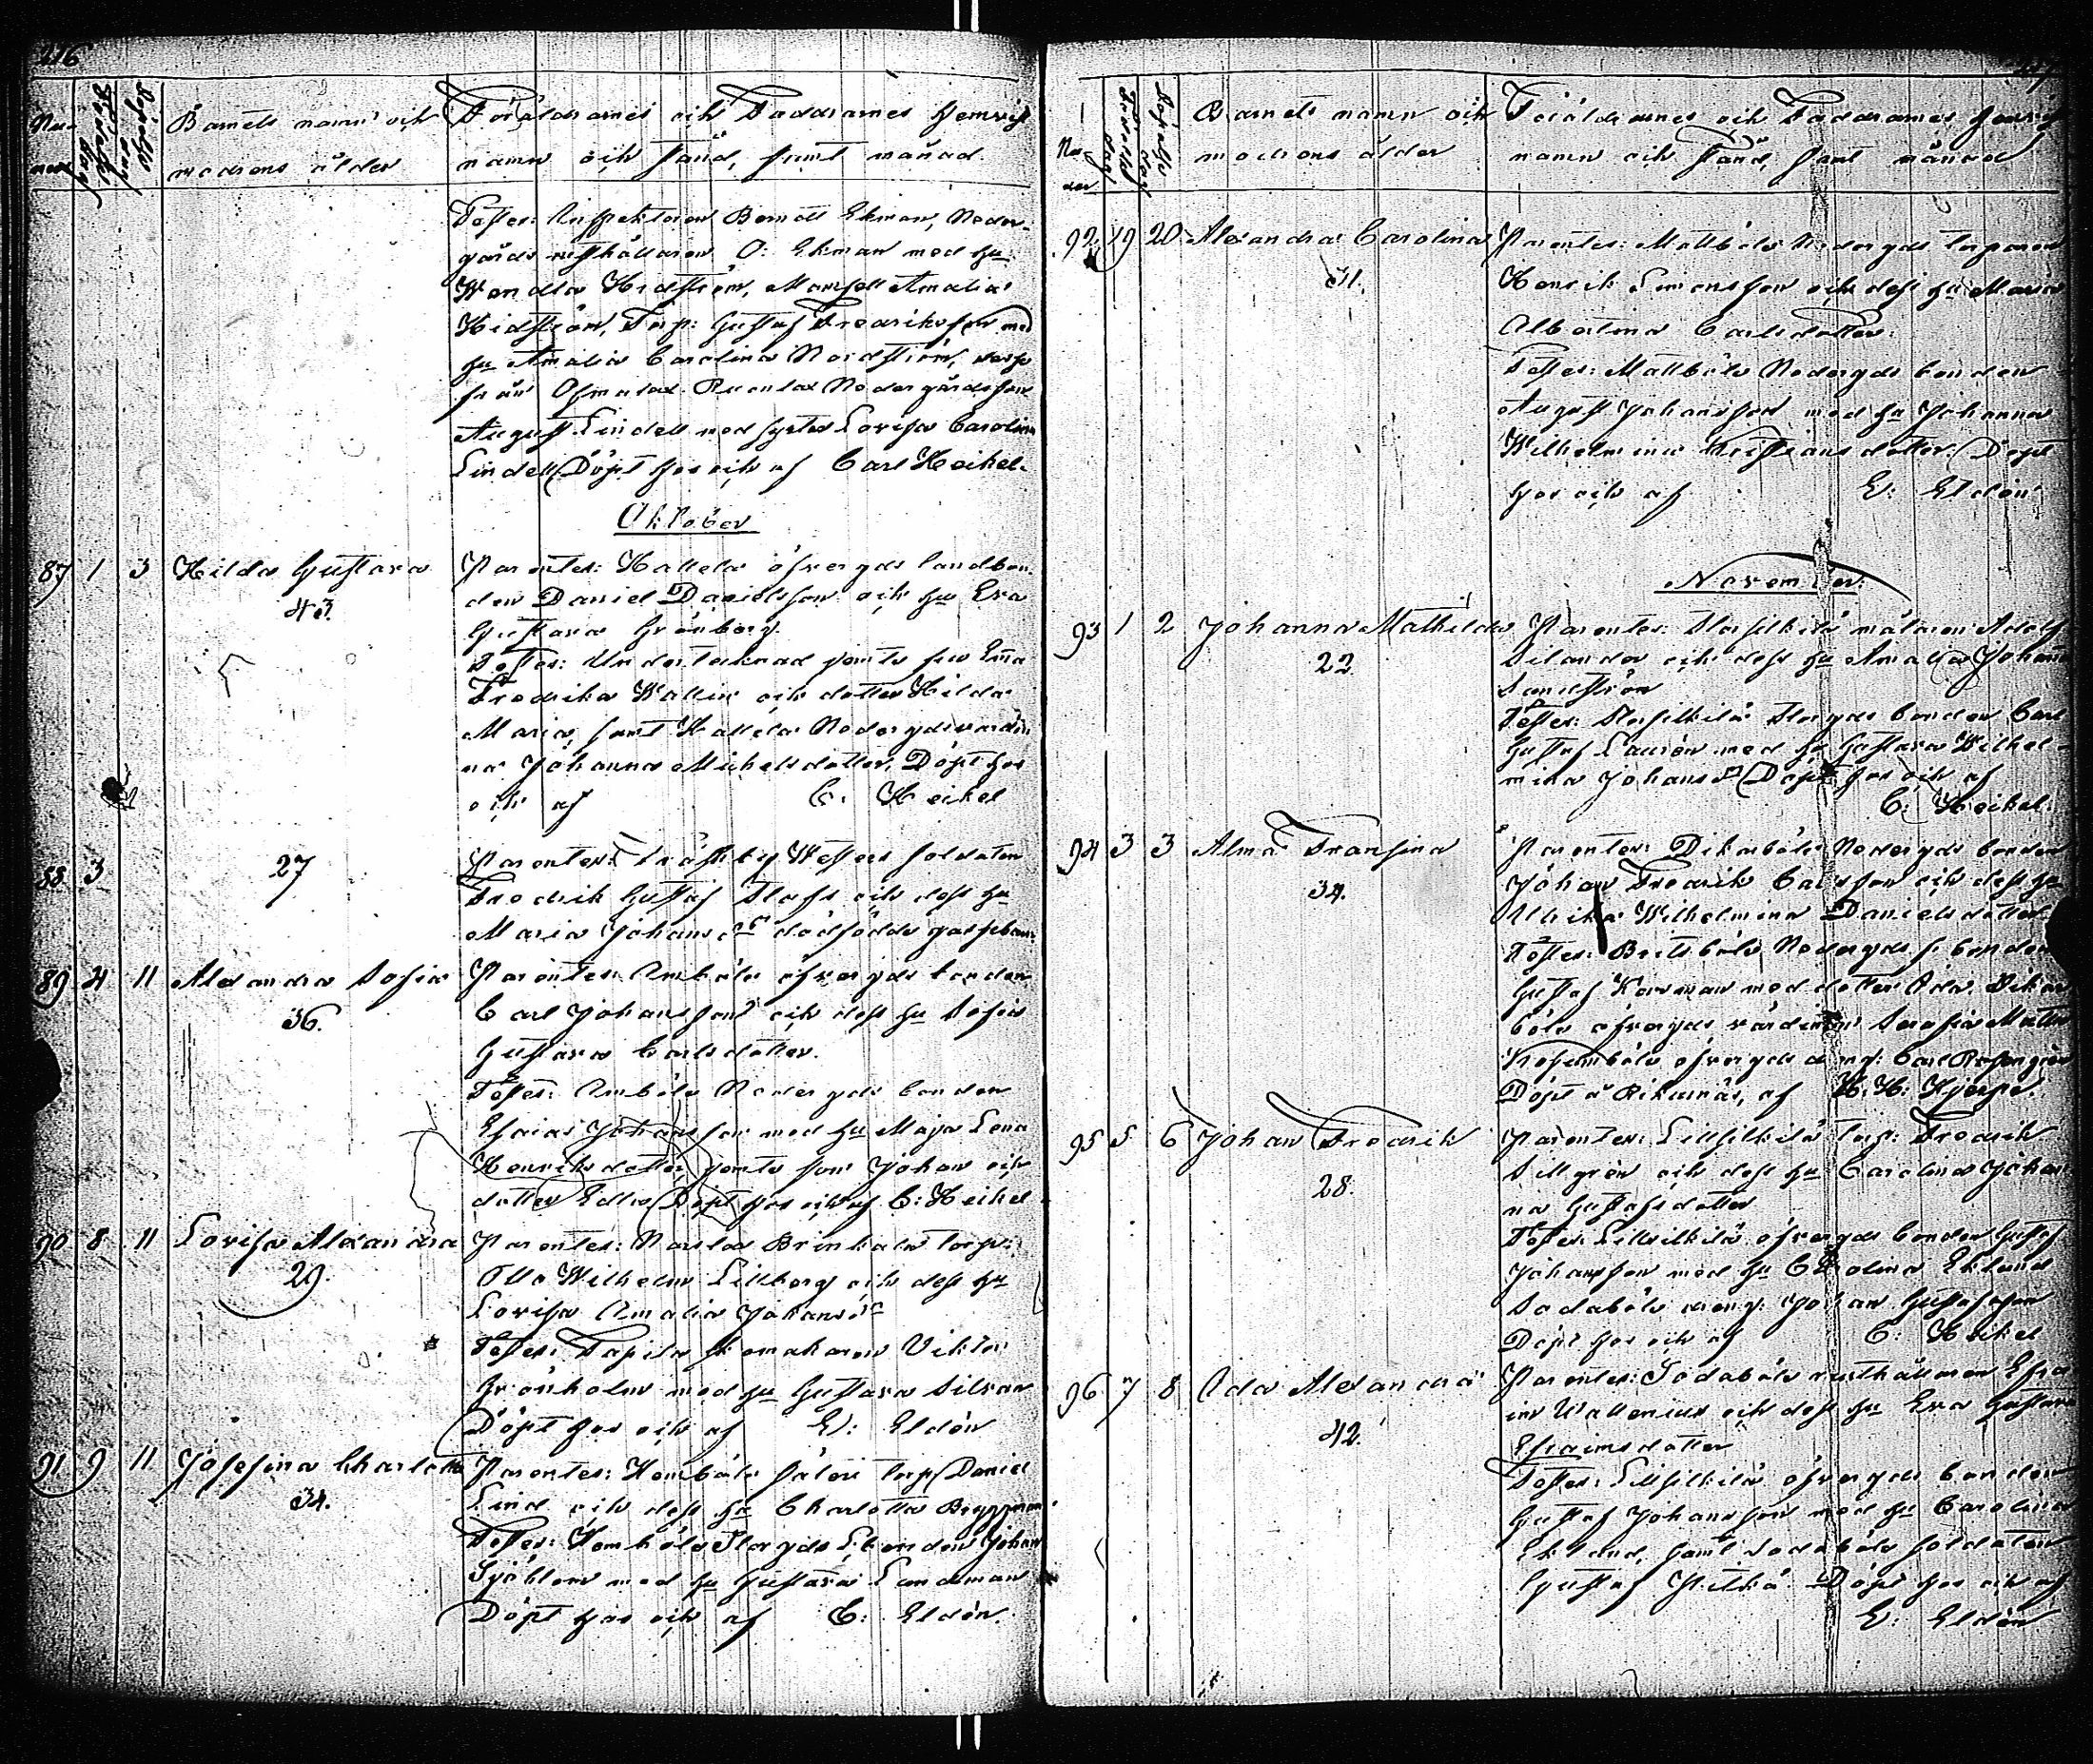 216
Barnets namn och
modrens ålder
Föräldrarnes och Faddrarnes hemvist
namn och stånd, samt månad.
Testes: Inspektoren Berndt Ekman, Neder-
gårds rusthållaren O: Ekman med hu
Wendla Hidström, Mamsell Amalia
Hidström, Torp: Gustaf Fredriksson med
hu Amalia Carolina Nordström,
från Nedergårds son
August Lindell med syster Lovisa Carolina
Lindell Döpt hos och af Carl Heikel.
Oktober
87 1 3 Hilda Gustava
43.
Parentes: Kallela öfvergds landbon-
den Daniel Danielsson och hu Eva
Gustava Grönberg.
Testes: Undertecknad jemte fru Ema
Fredrika Wallin och dotter Hilda
Maria, samt Kallela Nedergds värdin-
na Johanna Michelsdotter, Döpt hos
och af C: Heikel
88 3
27
Parentes: Träskby Westers soldaten
Fredrik Gustaf och dess hu
Maria Johans dr dödfödde gossebarn
89 4 11 Alexandra Sofia
36.
Parentes: Ambåle öfvergds bonden
Carl Johansson och dess hu Sofia
Gustava Carlsdotter.
Testes: Ambåle Nedergds bonden
Esaias Johansson med hu Maja Lena
Henriksdotter jemte son Johan och
dotter Edla Döpt hos och af C: Heikel
90 8 11 Lovisa Alexandra
29.
Parentes: Brinkala torp:
Otto Wilhelm Lillberg och dess hu
Lovisa Amalia Johans dr
Testes: skomakaren Viktor
Grönholm med hu Gustava Silvan
Döpt hos och af E: Eldén
91 9 11 Josefina Charlotta
34.
Parentes: Kombåle säteri torp: Daniel
Lind och dess hu Charlotta
Testes: Kombåle Storgds bonden Johan
Sjöblom med hu Gustava Landeman
Döpt hos och af E: Eldén.
217
Barnets namn och
modrens ålder
Föräldrarnes och Faddrarnes hemvist
namn och stånd, samt månad
92 19 20 Alexandra Carolina
31.
Parentes: Mattböle Nedergds torparen
Henrik Simonsson och dess hu Maria
Albertina Carlsdotter.
Testes: Mattböle Nedergds bonden
August Johansson med hu Johanna
Wilhelmina Kristiansdotter. Döpt
hos och af E: Eldén
November.
93 1 2 Johanna Mathilda
22.
Parentes: Storsilkilä målaren Adolf
Silander och dess hu Amalia Johanna
Sandström
Testes: Storsilkilä Storgds bonden Carl
Gustaf Laurén med hu Gustava Wilhel-
mina Johans dr Döpt hos och af
C: Heikel.
94 3 3 Alma Fransina
34.
Parentes: Dikarböle Nedergds bonden
Johan Fredrik Carlsson och dess hu
Ulrika Wilhelmina Danielsdotter
Testes: Britsböle Nedergds bonden
Gustaf med dotter Ida. Dikar-
böle öfvergds värdinna Serafia
öfvergds dreng: Carl Rosengrén
Döpt å Rikusnäs, af K. H: Hjerpe.
95 5 6 Johan Fredrik
28.
Parentes: Lillsilkilä torp: Fredrik
Sillgrén och dess hu Carolina Johan-
na Gustafsdotter
Testes: Lillsilkilä öfvergds bonden Gustaf
Johansson med hu Carolina Eklund
Sodaböle dreng: Johan Gustafsson
Döpt hos och af C: Heikel
96 7 8 Ida Alexandra
42.
Parentes: Sodaböle rusthållaren Efra-
im Wallenius och dess hu Eva Gustava
Efraimsdotter
Testes: Lillsilkilä öfvergds bonden
Gustaf Johansson med hu Carolina
Eklund, samt Sodaböle soldaten
Gustaf Döpt hos och af
E: Eldén